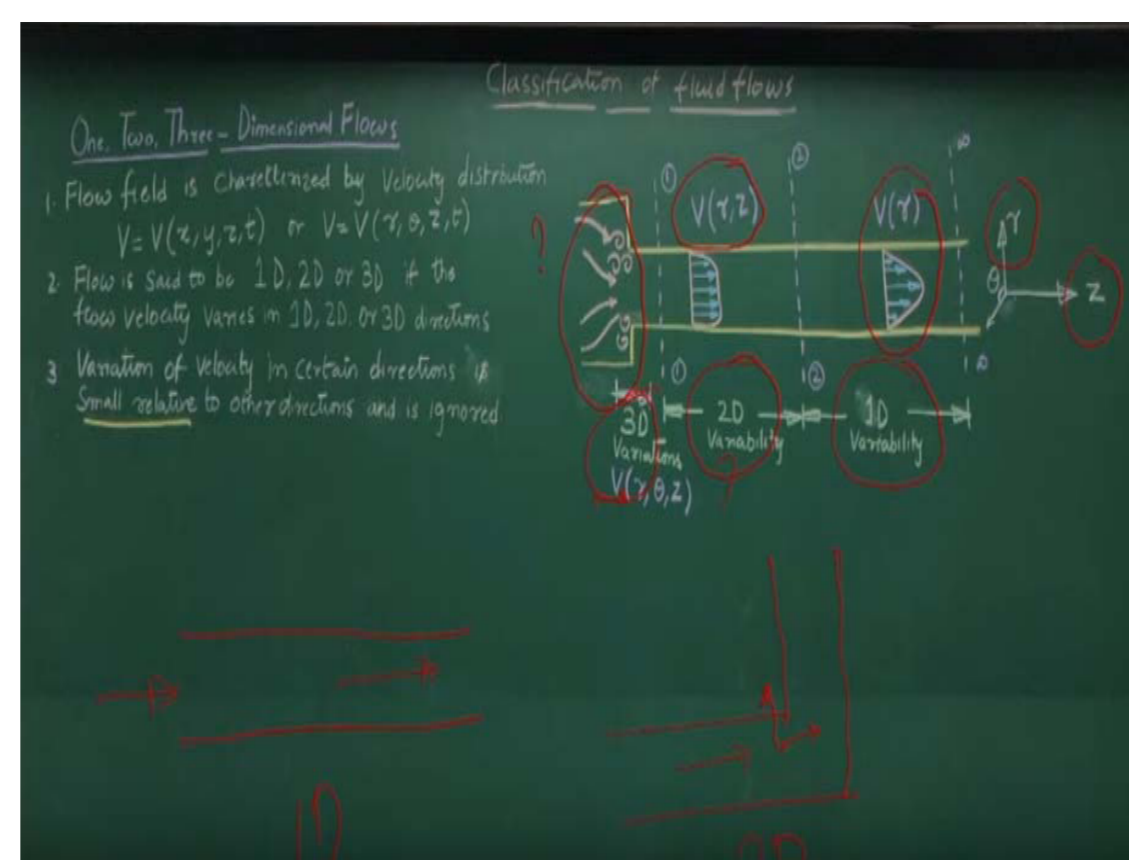 Classification of fluid flows
One, Two, Three - Dimensional Flows
1. Flow field is charellenzed by Velocity distribution
V = V(x, y, z, t) or V = V(r, θ, z, t)
2. Flow is said to be 1D, 2D or 3D if the
flow velocity varies in 1D, 2D or 3D directions
3 Variation of velocity in certain directions is
Small relative to other directions and is ignored
?
① ② ∞
V(r, z) V(r)
r
θ
Z
① ② ∞
3D
Variations
V(r, θ, z)
2D
Variability
1D
Variability
1D
2D